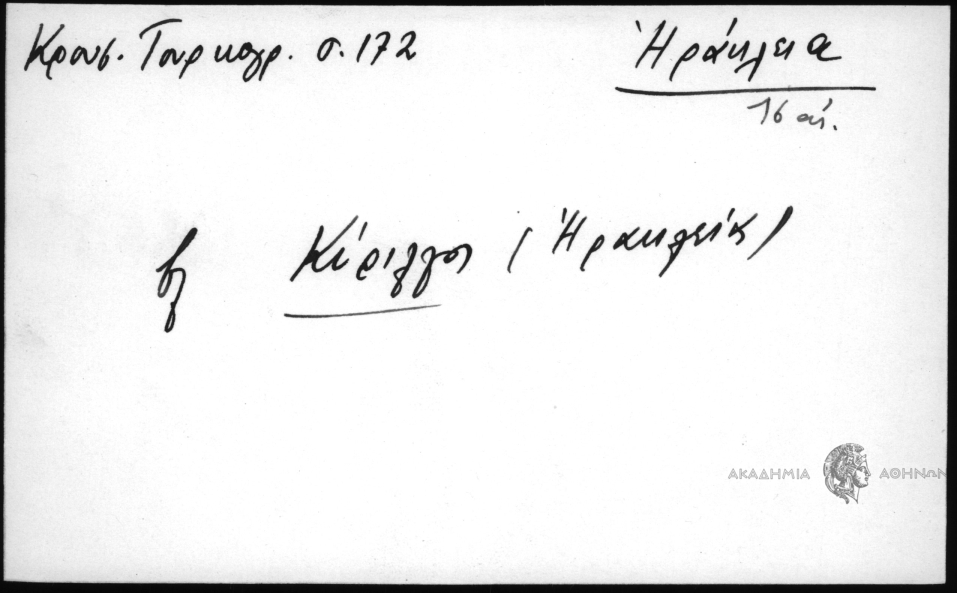 Κρουσ. Τουρκογρ. σ. 172
Ἡράκλεια
16 αἰ.
βλ Κύριλλος (Ἡρακλείας)
ΑΚΑΔΗΜΙΑ ΑΘΗΝΩΝ